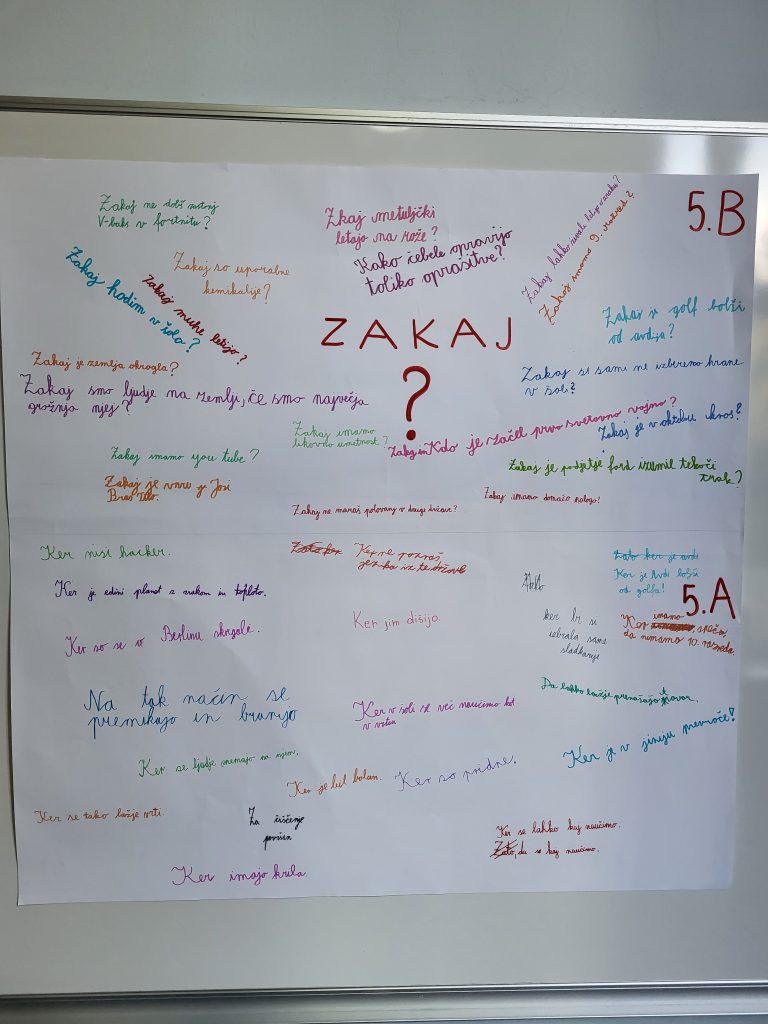 5.B
Zakaj ne dobš
V-baks v fortnitu?
Zkaj metuljčki
letajo na rože?
Kako čebele opravijo
toliko oprašitve?
Zakaj lahko
Zakaj imamo 9. razred?
Zakaj so uporabne
kemikalije?
Zakaj hodim v šolo?
Zakaj muhe letijo?
ZAKAJ
?
Zakaj je golf bolši
od avdija?
Zakaj je zemlja okrogla?
Zakaj si sami ne izberemo hrane
v šoli?
Zakaj smo ljudje na zemlji, če smo največja
grožnja njej?
Zakaj imamo
likovno umetnost?
Kdo je začel prvo svetovno vojno?
Zakaj je v oktobru kros?
Zakaj imamo you tube?
Zakaj je podjetje ford izumil tekoči
trak?
Zakaj je umru
Bros Tito.
Zakaj ne maraš polovang v drugi države?
Zakaj imamo domačo nalogo?
Ker nisi hacker.
Ker ne poznaš
Zato ker je avdi
Ker je Avdi bolši
od golfa!
5.A
Ker je edini planet z zrakom in toploto.
Ker so se v Berlinu skregale.
Ker jim dišijo.
ker bi si
izbrala same
sladkarije
Ker imamo srečo,
da nimamo 10. razreda.
Na tak način se
premikajo in branijo
Ker v šoli se več naučimo kot
v vrtcu
Da lahko lažje prenašajo tovor.
Ker se ljudje snemajo na njem.
Ker je bil bolan.
Ker so pridne.
Ker je v juniju prevroče!
Ker se tako lažje vrti.
Za čiščenje
površin
Ker se lahko kaj naučimo.
Zato, da se kaj naučimo.
Ker imajo krila.